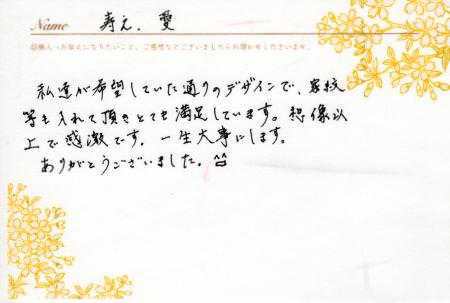 Name 寿え、愛
◎職人へお伝えになりたいこと、ご感想などございましたらお聞かせくださいませ。
私達が希望していた通りのデザインで、家紋
等も入れて頂きとても満足しています。想像以
上で感激です。一生大事にします。
ありがとうございました。^^